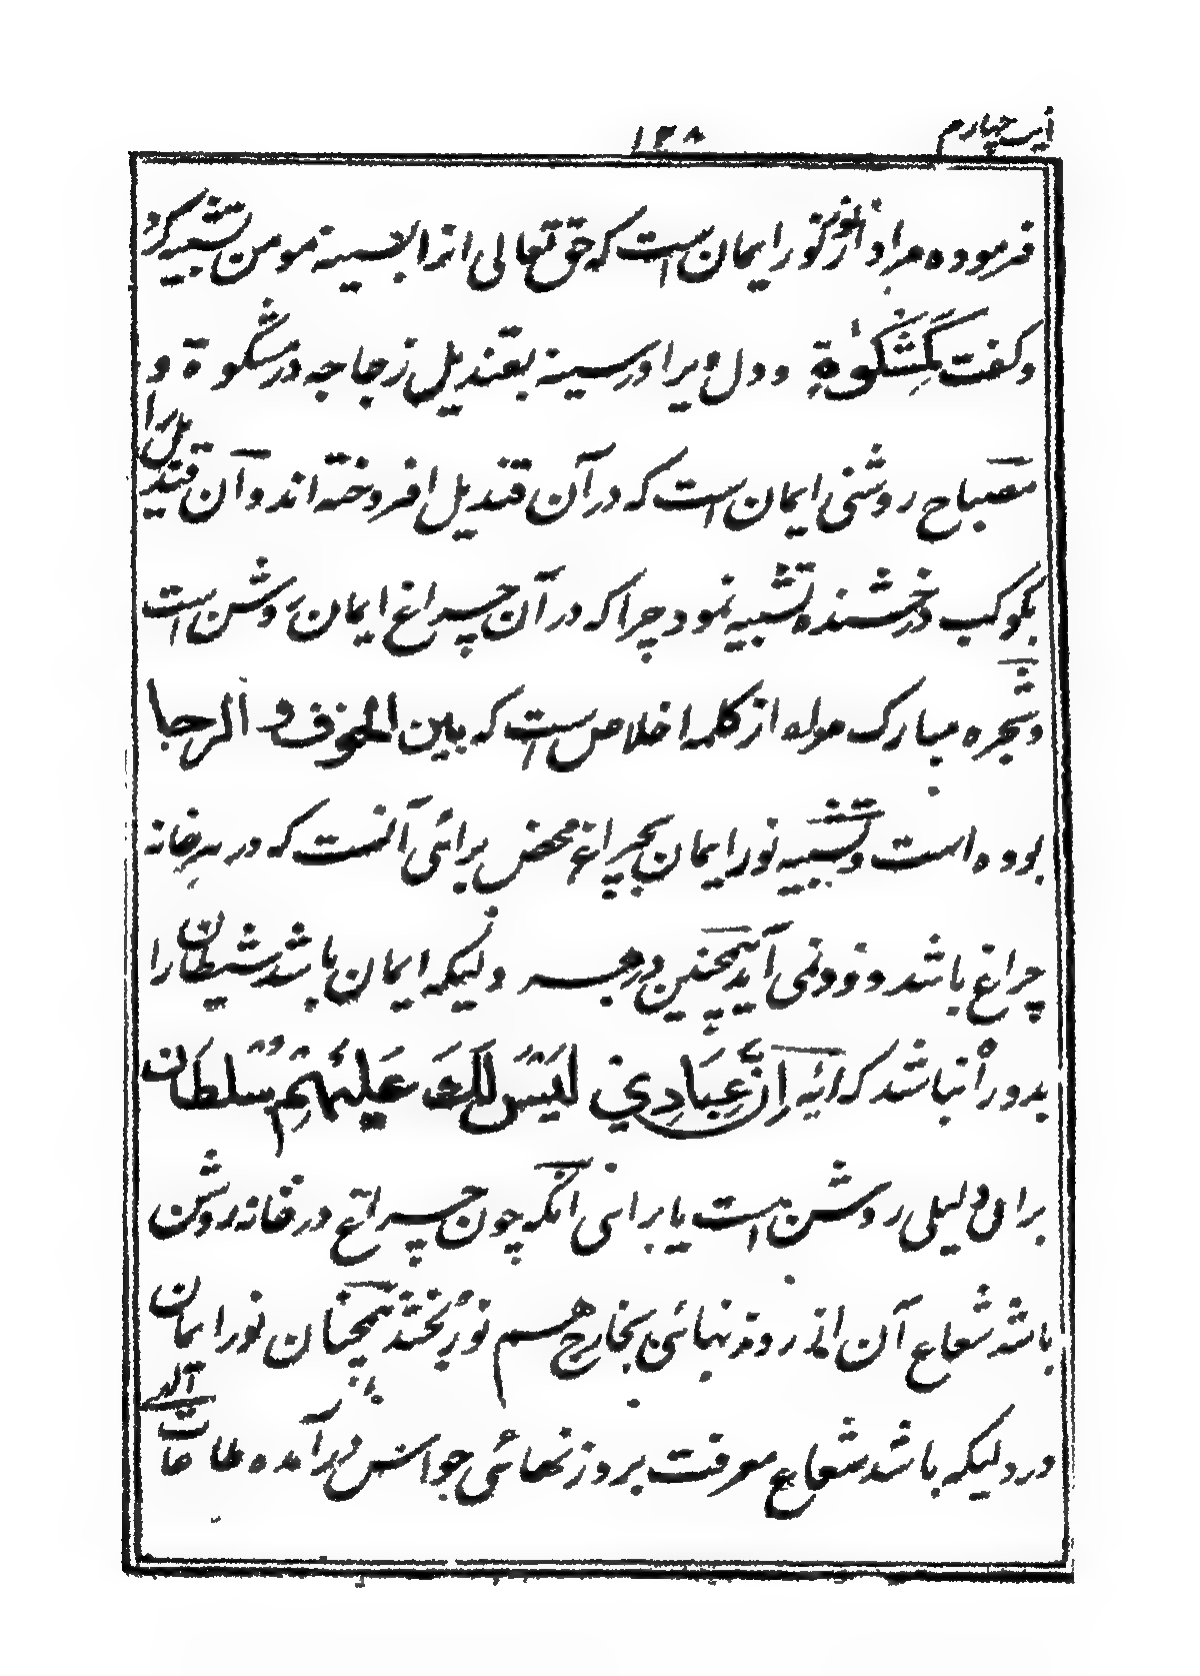 آیت چهارم
۱۲۸
فرموده مراد از نور نور ایمان است که حق تعالی انرا بسینه مومن تشبیه کرد
و گفت کَمِشْکوٰةٍ و دل ویرا در سینه بقندیل زجاجه در مشکوة و
مصباح روشنی ایمان است که در آن قندیل افروخته اند و آن قندیل را
بکوکب درخشنده تشبیه نمود چرا که در آن چراغ ایمان روشن است
و شجره مبارک موله از کلمه اخلاص است که بین الخوف و الرجا
بوده است و تشبیه نور ایمان بچراغ محض برائی آنست که در هر خانه
چراغ باشد دزد نمی آید همچنین در هر دلیکه ایمان باشد شیطان را
بدو راه نباشد که ائیه اِنَّ عِبَادِي لَيْسَ لَكَ عَلَيْهِمْ سُلْطَان
برای دلیلی روشن است یا برائی آنکه چون چراغ در خانه روشن
باشد شعاع آن از روزنهائی بخارج هم نور بخشد همچنان نور ایمان
در دلیکه باشد شعاع معرفت بروزنهائی حواس در آمده طاعات
آلهی